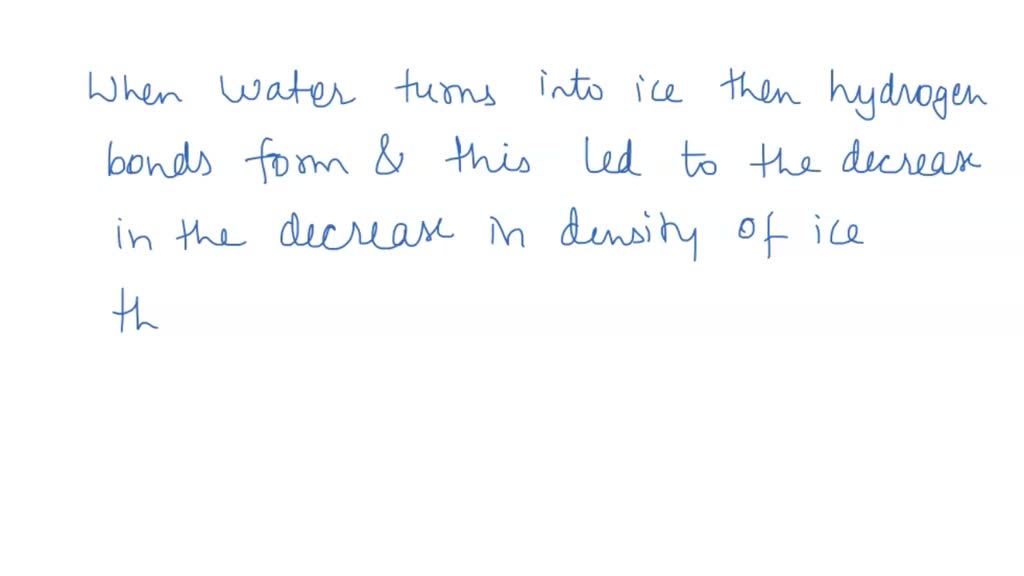 When water turns into ice then hydrogen
bonds form & this led to the decrease
in the decrease in density of ice
th